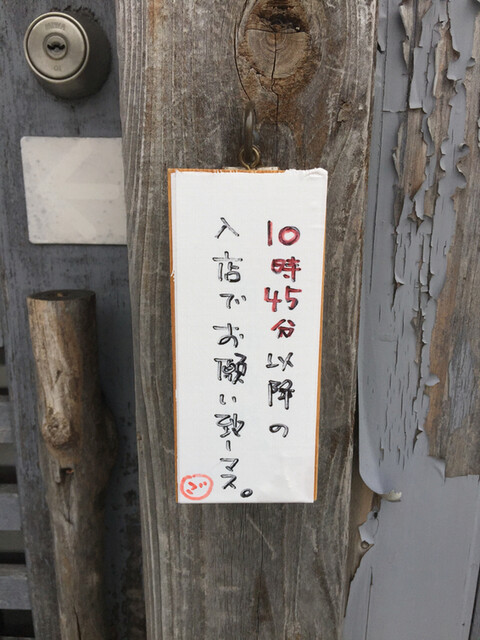 10時45分以降の
入店でお願い致ーマス。
ぶ